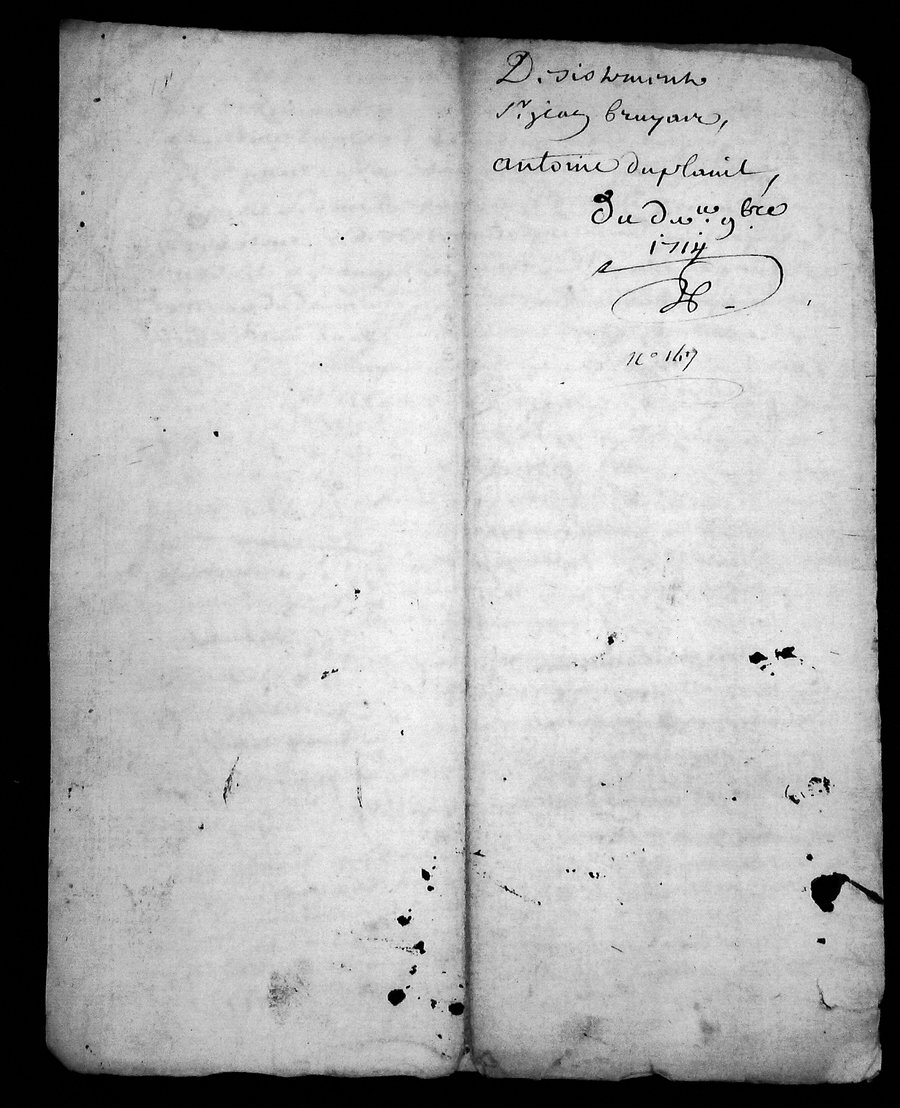 Desistement
Sr. jean bruyere,
antoine duplanil,
Du 9bre
1714
no 147